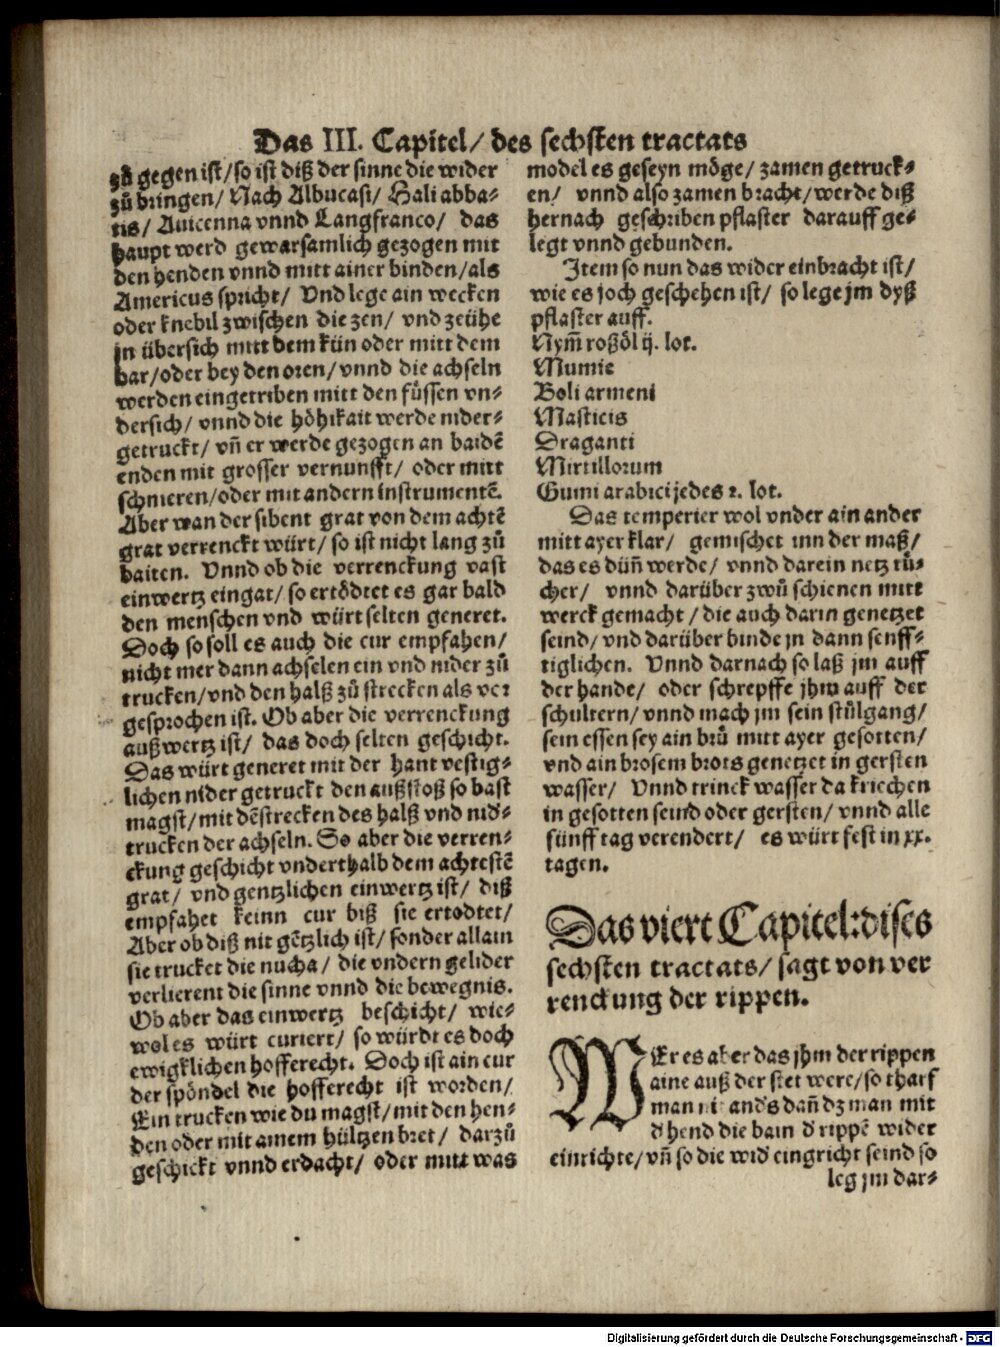 Das III. Capitel/ des sechsten tractats
zů gegen ist/ so ist diß der sinne die wider
zů bringen/ Nach Albucasi/ Hali abba-
tis/ Auicenna vnnd Langfranco/ das
haupt werd gewarsamlich gezogen mit
den henden vnnd mitt ainer binden/ als
Americus spricht/ Vnd lege ain wecken
oder knebil zwischen die zen/ vnd zeühe
jn übersich mitt dem kün oder mitt dem
har/ oder bey den oren/ vnnd die achseln
werden eingetriben mitt den füssen vn-
dersich/ vnnd die höhikait werde nider-
getruckt/ vñ er werde gezogen an baidē
enden mit grosser vernunfft/ oder mitt
schnieren/ oder mit andern instrumentē.
Aber wan der sibent grat von dem achtē
grat verrenckt würt/ so ist nicht lang zů
baiten. Vnnd ob die verrenckung vast
einwertz eingat/ so ertödtet es gar bald
den menschen vnd würt selten generet.
Doch so soll es auch die cur empfahen/
nicht mer dann achselen ein vnd nider zů
trucken/ vnd den halß zů strecken als vor
gesprochen ist. Ob aber die verrenckung
außwertz ist/ das doch selten geschicht.
Das würt generet mit der hant vestig-
lichen nider getruckt den außstoß so bast
magst/ mit dē strecken des halß vnd nid'-
trucken der achseln. So aber die verren-
ckung geschicht vnderthalb dem achtestē
grat/ vnd gentzlichen einwertz ist/ diß
empfahet keinn cur biß sie ertodtet/
Aber ob diß nit gētzlich ist/ sonder allain
sie trucket die nucha/ die vndern gelider
verlierent die sinne vnnd die bewegnis.
Ob aber das einwertz beschicht/ wie-
wol es würt curiert/ so würdt es doch
ewigklichen hofferecht. Doch ist ain cur
der spöndel die hofferecht ist worden/
Ein trucken wie du magst/ mit den hen-
den oder mit ainem hültzen bret/ darzů
geschickt vnnd erdacht/ oder mitt was
model es geseyn möge/ zamen getruck-
en/ vnnd also zamen bracht/ werde diß
hernach geschriben pflaster darauff ge-
legt vnnd gebunden.
Item so nun das wider einbracht ist/
wie es joch geschehen ist/ so lege jm dyß
pflaster auff.
Nym̄ roßöl ij. lot.
Mumie
Boli armeni
Masticis
Draganti
Mirtillorum
Gumi arabici jedes ɪ. lot.
Das temperier wol vnder ain ander
mitt ayerklar/ gemischet inn der maß/
das es düñ werde/ vnnd darein netz tů-
cher/ vnnd darüber zwů schienen mitt
werck gemacht/ die auch darin genetzet
seind/ vnd darüber binde jn dann senff-
tiglichen. Vnnd darnach so laß jm auff
der hande/ oder schrepffe jhm auff der
schultern/ vnnd mach jm sein stůlgang/
sein essen sey ain brů mitt ayer gesotten/
vnd ain brosem brots genetzet in gersten
wasser/ Vnnd trinck wasser da kriechen
in gesotten seind oder gersten/ vnnd alle
fünff tag verendert/ es würt fest in xx.
tagen.
Das viert Capitel: dises
sechsten tractats/ sagt von ver
renckung der rippen.
WEr es aber das jhm der rippen
aine auß der stet were/ so tharf
man ni ands dañ dz man mit
d' hend die bain d' rippē wider
einrichte/ vñ so die wid' eingricht seind so
leg jm dar-
Digitalisierung gefördert durch die Deutsche Forschungsgemeinschaft - DFG